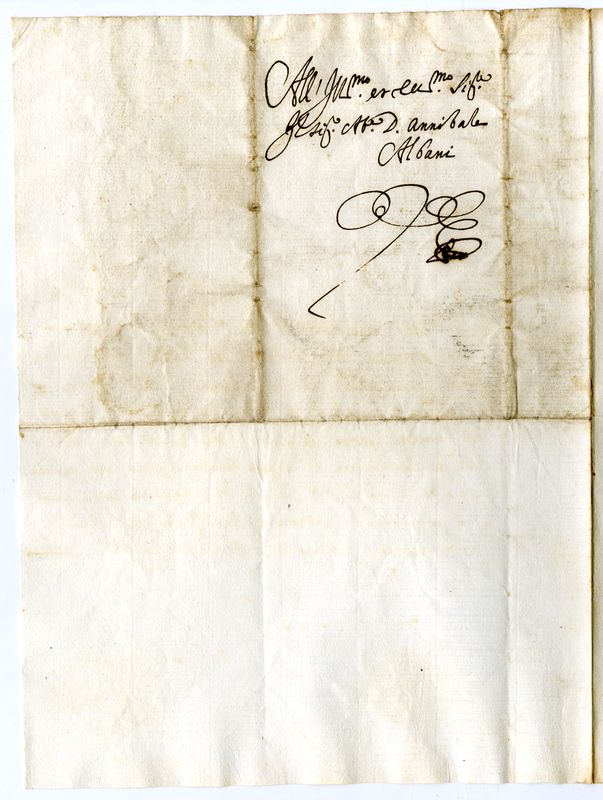 All' Ill.mo et Ecc.mo Sig.re
Il Sig.r Ab.e D. Annibale
Albani